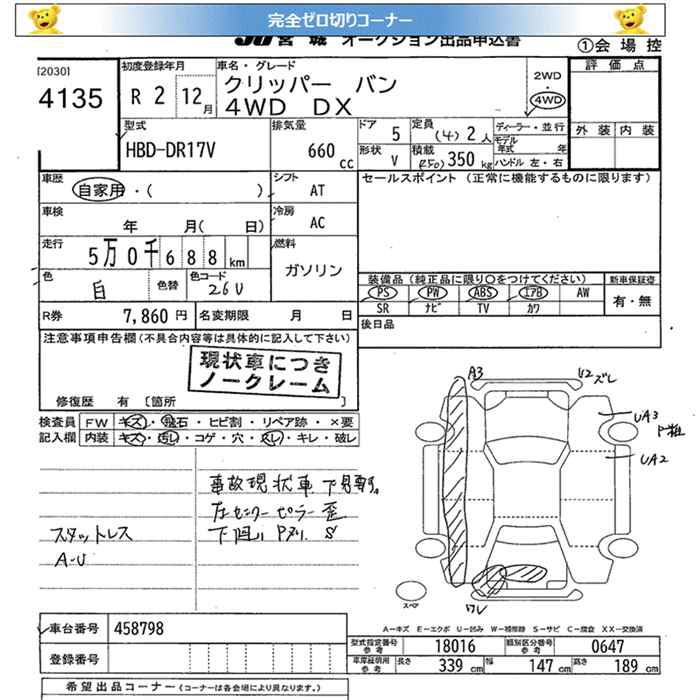 完全ゼロ切りコーナー
JU 宮 城 オークション出品申込書
①会 場 控
[2030]
4135
初度登録年月
R 2 12月
車名・グレード
クリッパー バン
4WD DX
2WD
・
4WD
評 価 点
外 装 内 装
型式
HBD-DR17V
排気量
660 cc
ドア 5
定員 (4) 2 人
ディーラー・並 行
モデル年式 年
形状 V
積載 (250) 350 kg
ハンドル 左・右
車歴
自家用・( )
シフト AT
セールスポイント (正常に機能するものに限ります)
車検
年 月( 日)
冷房 AC
走行
5万0千688km
燃料
ガソリン
色 白
色替
色コード 26U
装備品 (純正品に限り○をつけてください)
新車保証書
PS PW ABS エアB AW
有・無
SR ナビ TV カワ
R券 7,860 円
名変期限 月 日
後日品
注意事項申告欄 (不具合内容等は具体的に記入して下さい)
現状車につき
ノークレーム
修復歴 有 〔箇所 〕
検査員
記入欄
FW キズ・飛石・ヒビ割・リペア跡・×要
内装 キズ・汚れ・コゲ・穴・スレ・キレ・破レ
A3
ズレ
UA3
UA2
事故現状車
左センターピラー 歪
スタットレス
A-U
ワレ
スペア
A-キズ E-エクボ U-凹み W-補修跡 S-サビ C-腐食 XX-交換済
車台番号 458798
登録番号
型式指定番号
参考
18016
類別区分番号
参考
0647
車庫証明用
参考
長さ 339 cm 幅 147 cm 高さ 189 cm
希望出品コーナー (コーナーは各会場により異なります。)